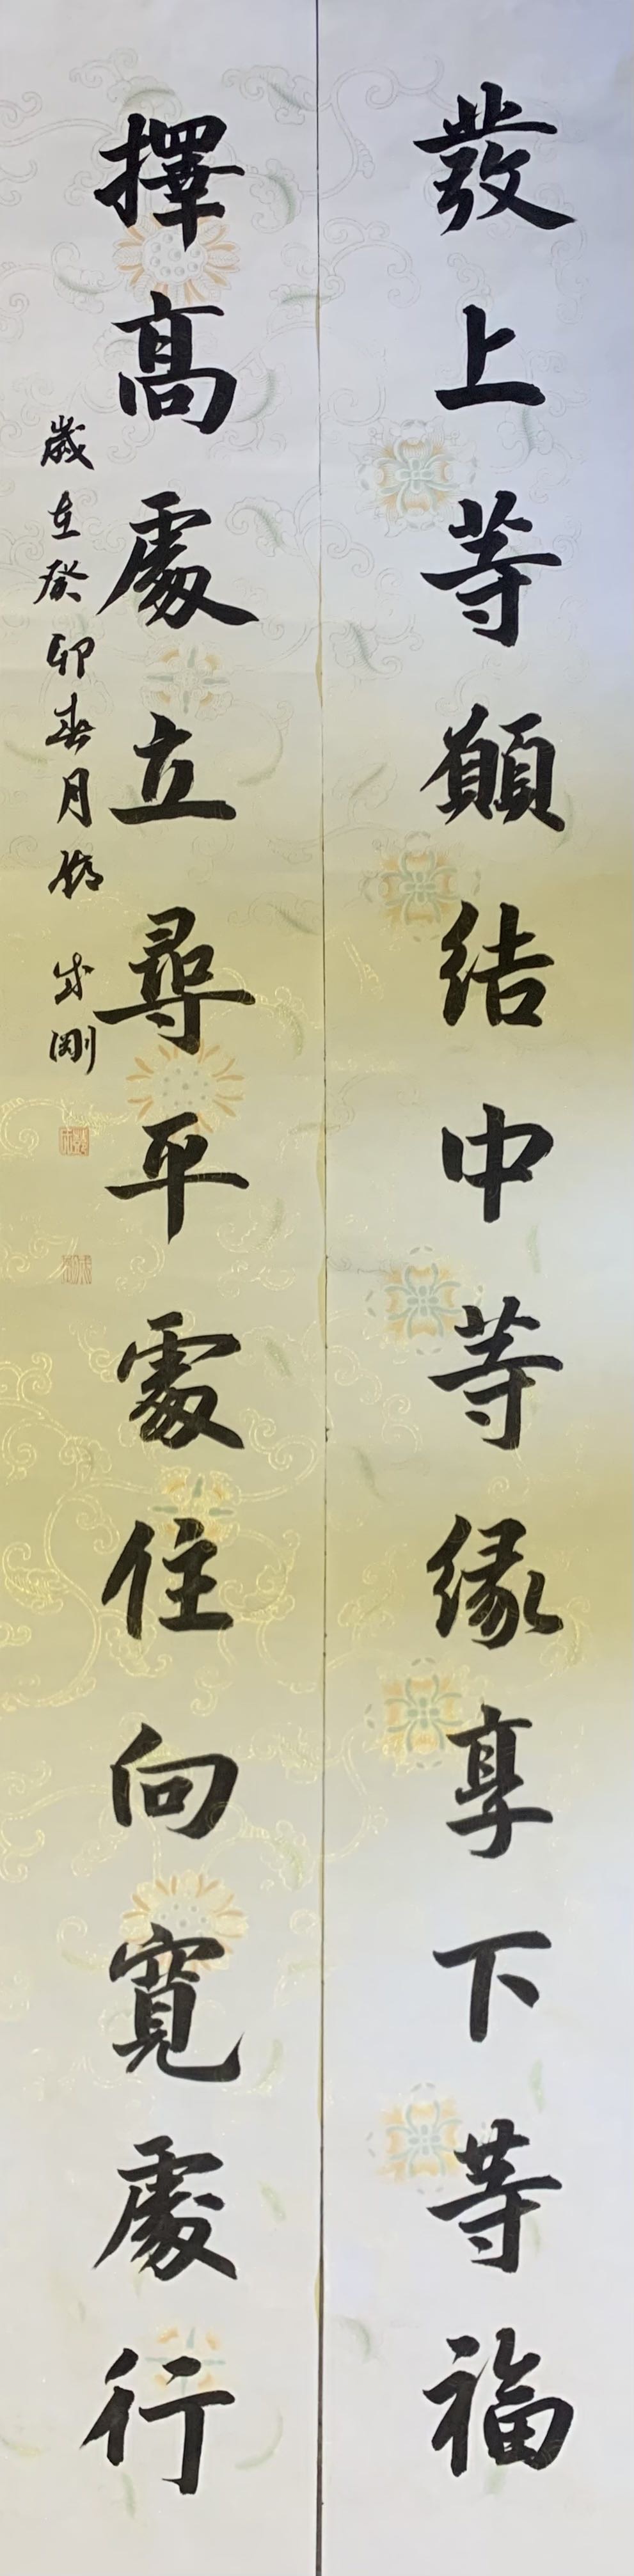 發上等願結中等緣享下等福
擇高處立尋平處住向寬處行
歲在癸卯春月 成剛